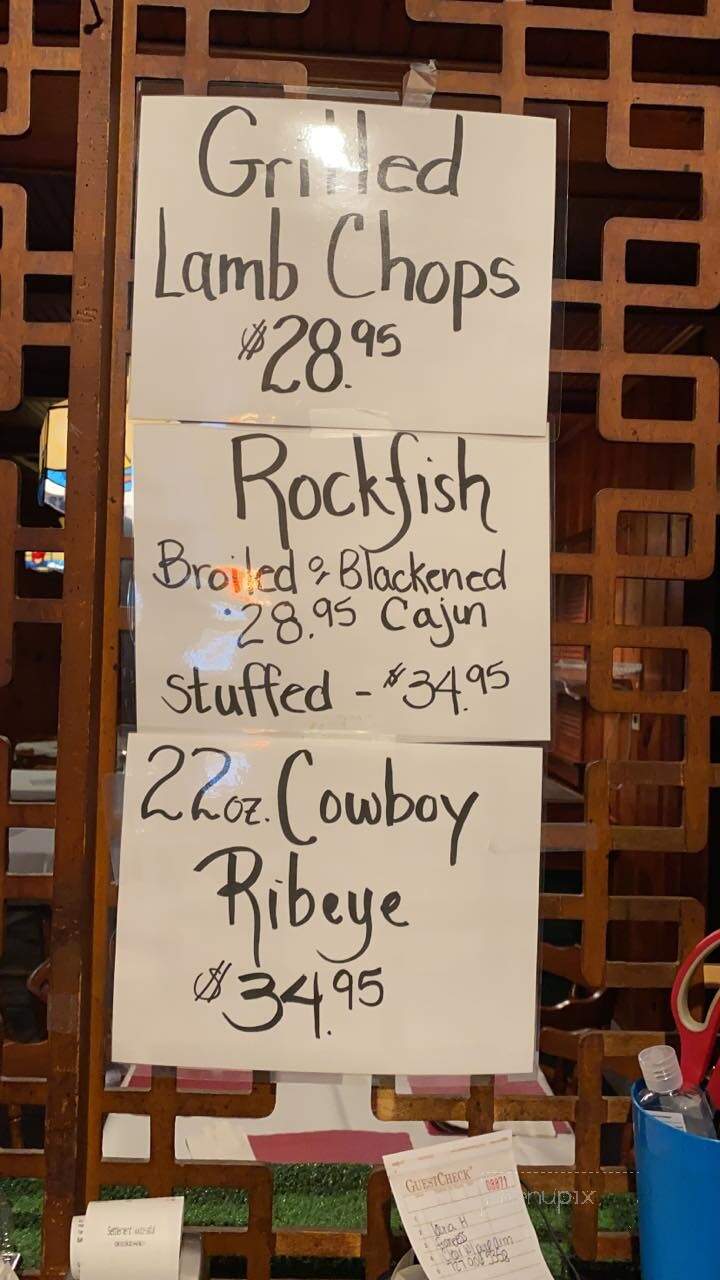 Grilled
Lamb Chops
$28.95
Rockfish
Broiled & Blackened
28.95 Cajun
Stuffed - $34.95
22oz. Cowboy
Ribeye
$34.95
GUESTCHECK
menupix